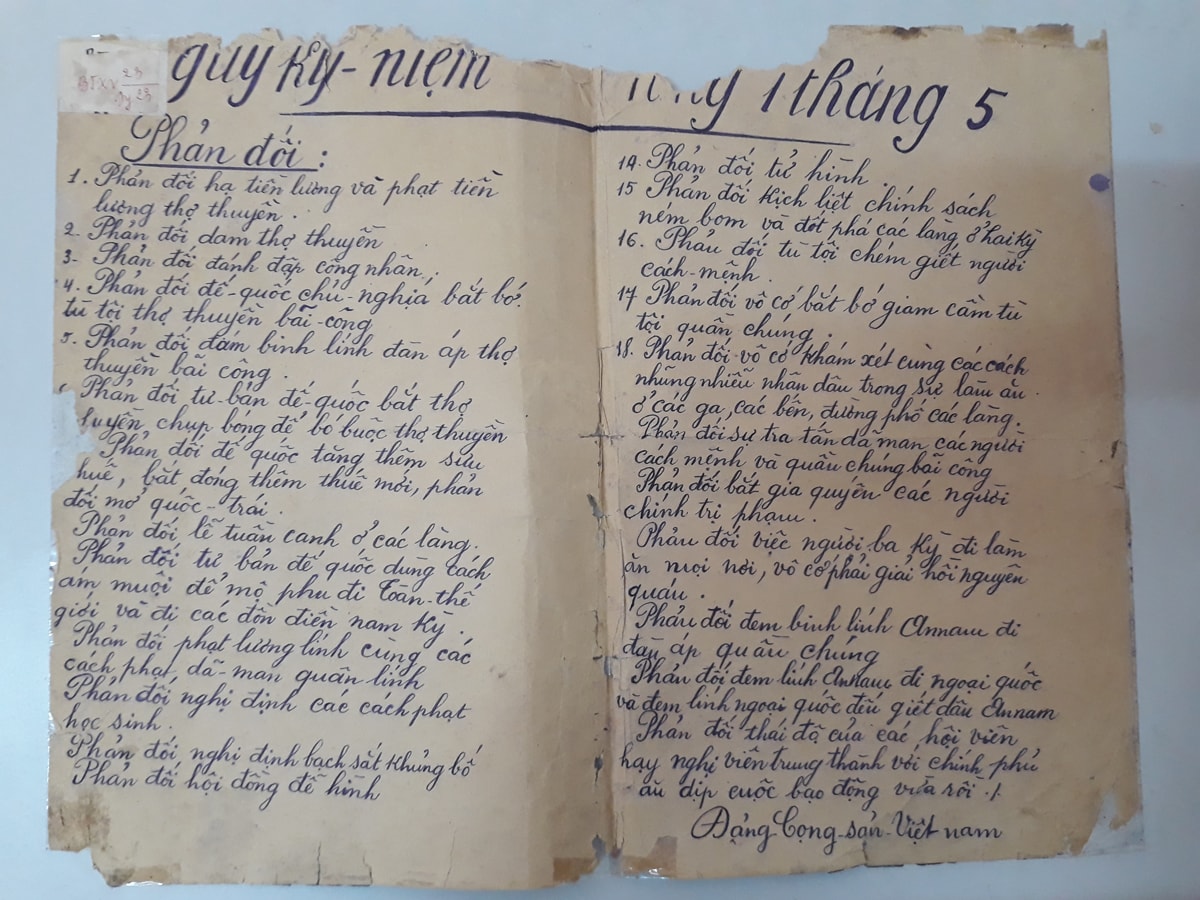 quy kỷ-niệm ngày 1 tháng 5
Phản đối :
1. Phản đối hạ tiền lương và phạt tiền
lương thợ thuyền .
2. Phản đối dam thợ thuyền
3. Phản đối đánh đập công nhân .
4. Phản đối đế-quốc chủ-nghiã bắt bớ
tù tội thợ thuyền bãi-công
5. Phản đối đám binh lính đàn áp thợ
thuyền bãi công .
Phản đối tư-bản đế-quốc bắt thợ
thuyền chụp bóng để bó buộc thợ thuyền
Phản đối đế quốc tăng thêm sưu
huế, bắt đóng thêm thuế mới, phản
đối mở quốc-trái .
Phản đối lễ tuần canh ở các làng .
Phản đối tư bản đế quốc dùng cách
am muội để mộ phu đi Tân-thế
giới và đi các đồn điền nam kỳ .
Phản đối phạt lương lính cùng các
cách phạt, dã-man quân lính
Phản đối nghị định các cách phạt
học sinh .
Phản đối nghị định bạch sắt khủng bố
Phản đối hội đồng đề hình
14. Phản đối tử hình .
15 Phản đối kịch liệt chính sách
ném bom và đốt phá các làng ở hai kỳ
16. Phản đối tù tội chém giết người
cách-mệnh .
17 Phản đối vô cớ bắt bớ giam cầm tù
tội quần chúng .
18. Phản đối vô cớ khám xét cùng các cách
những nhiễu nhân dân trong sự làm ăn
ở các ga, các bến, đường phố các làng .
Phản đối sự tra tấn dã man các người
cách mệnh và quần chúng bãi công
Phản đối bắt gia quyến các người
chính trị phạm .
Phản đối việc người ba kỳ đi làm
ăn mọi nơi, vô cớ phải giải hồi nguyên
quán .
Phản đối đem binh lính Annam đi
đàn áp quần chúng
Phản đối đem lính Annam đi ngoại quốc
và đem lính ngoại quốc đến giết dân Annam
Phản đối thái độ của các hội viên
hay nghị viên trung thành với chính phủ
ăn dịp cuộc bạo động vừa rồi ./.
Đảng Cọng-sản-Việt nam